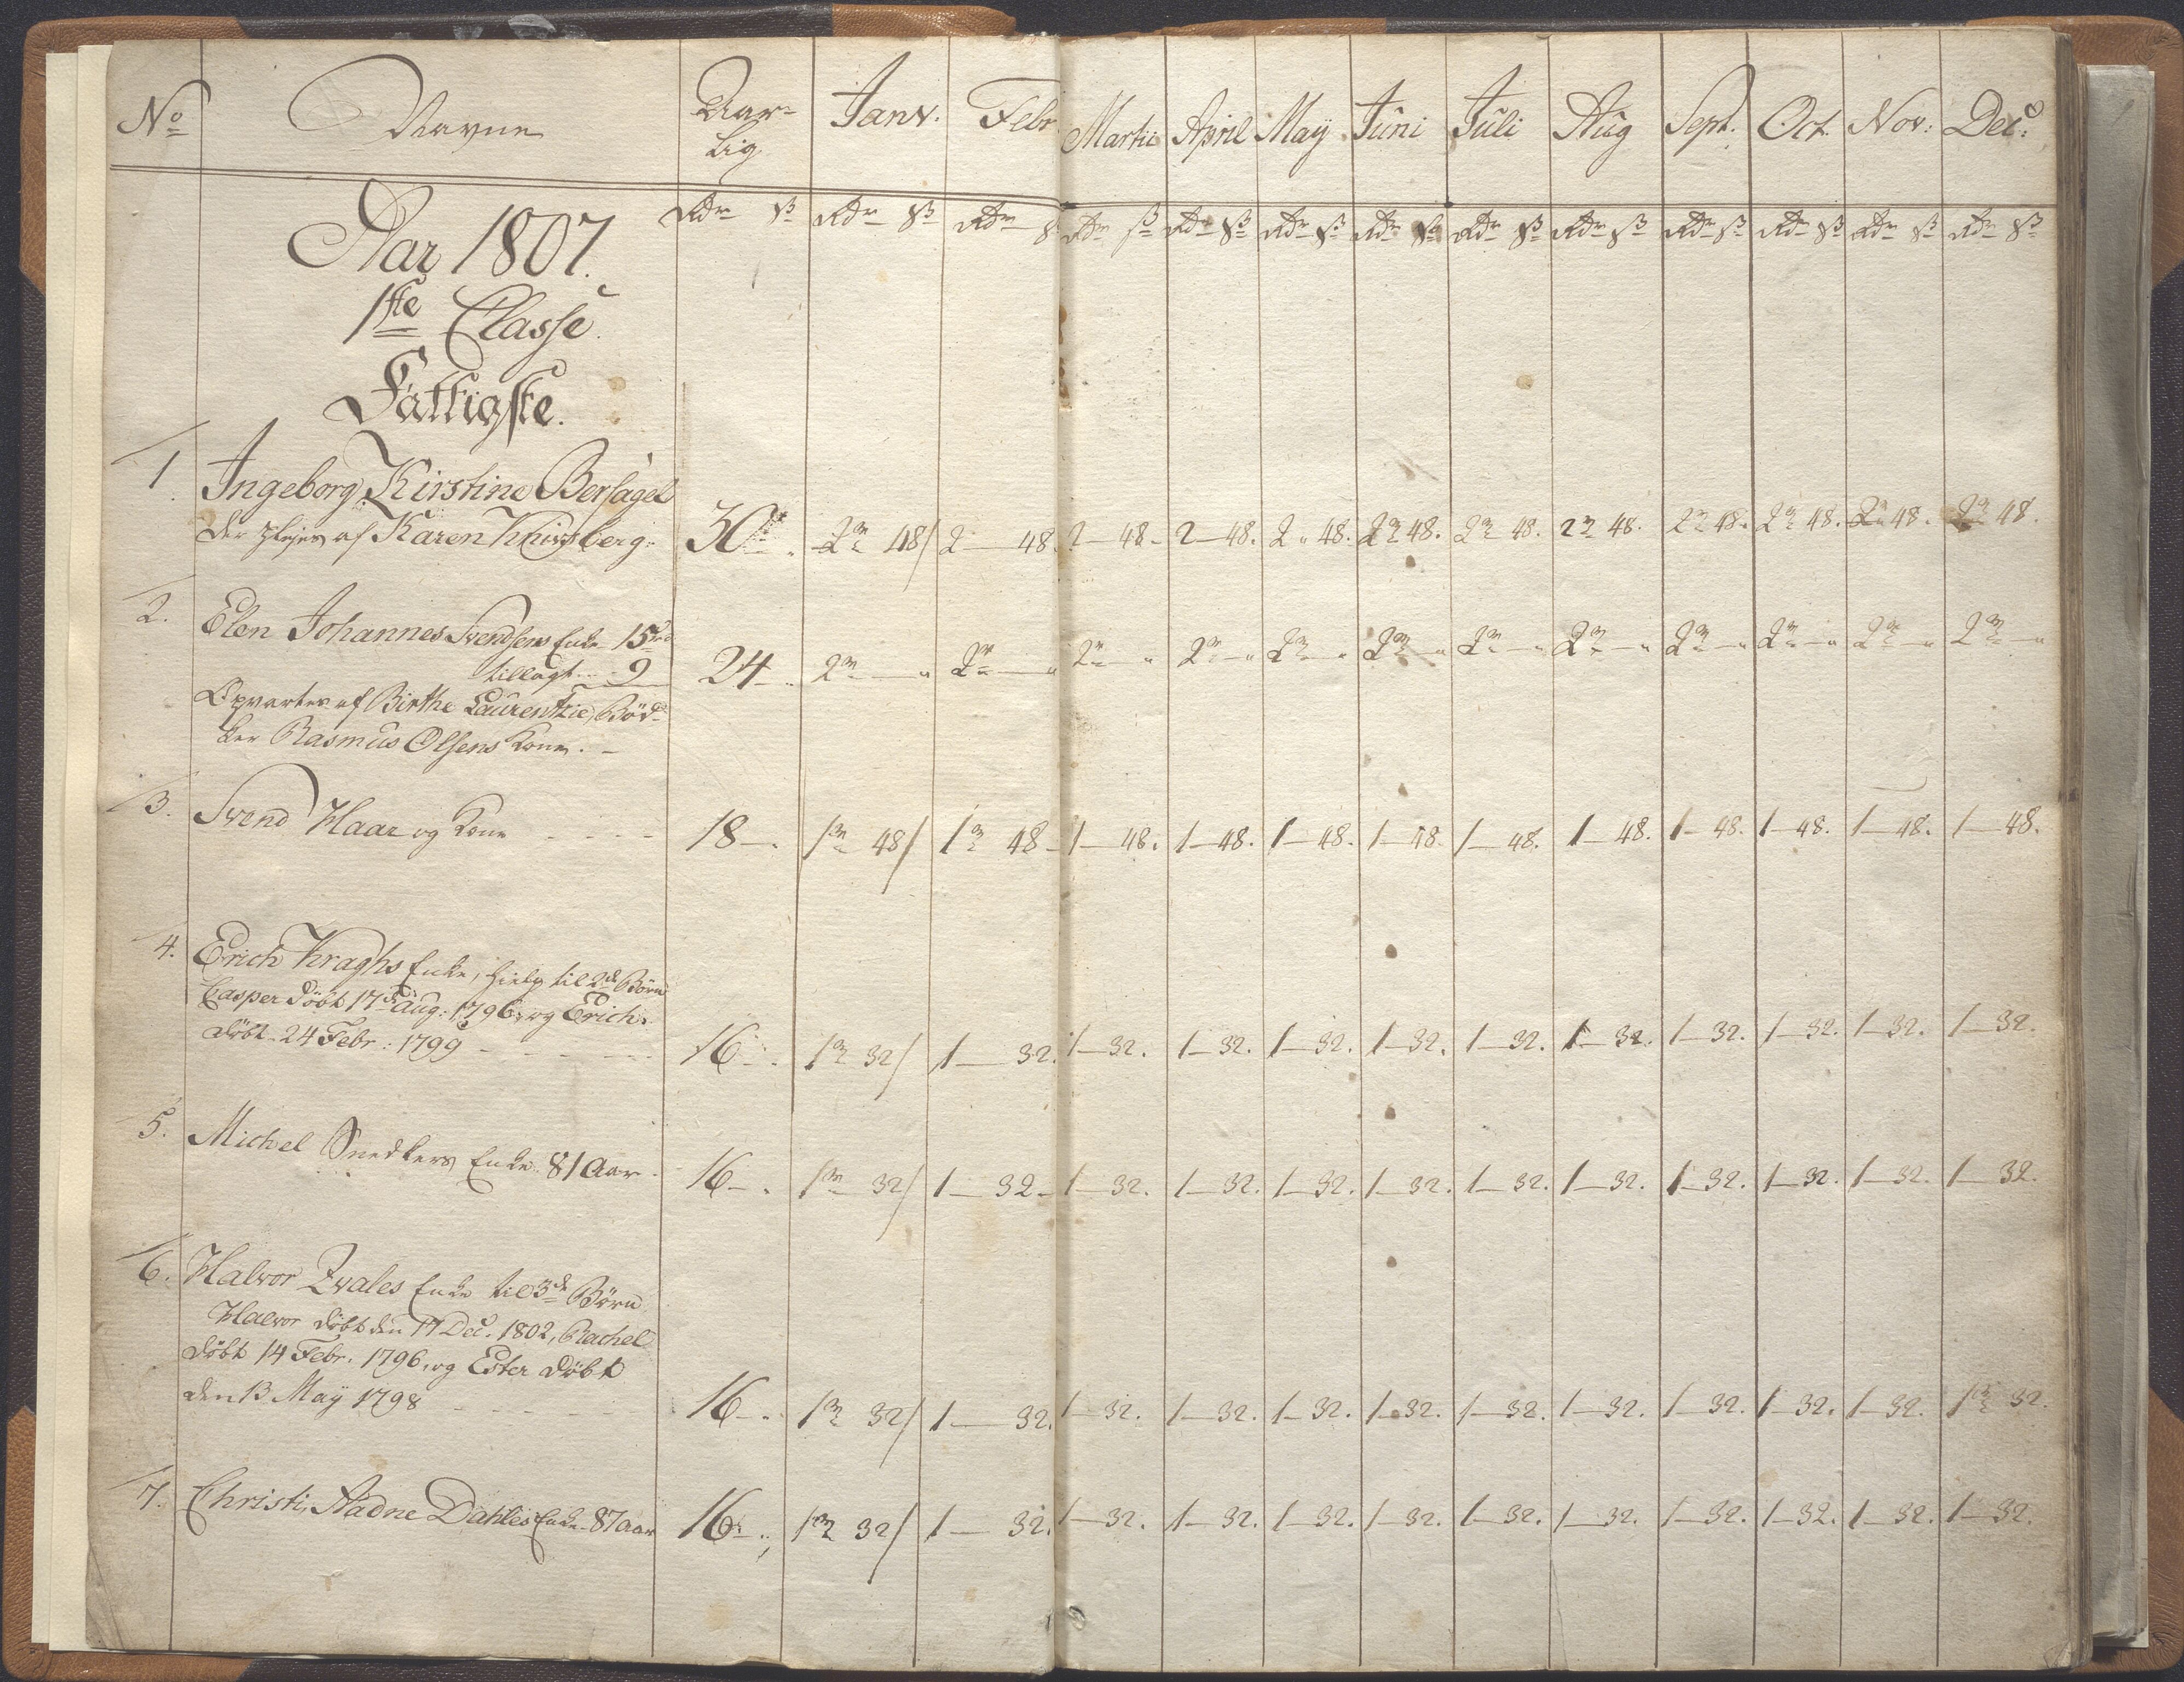 No Navne Aar- Janv. Febr. Martii April Maÿ Juni Juli Aug Sept. Oct. Nov: Dec:
lig
Rdr ß Rdr ß Rdr ß Rdr ß Rdr ß Rdr ß Rdr ß Rdr ß Rdr ß Rdr ß Rdr ß Rdr ß Rdr ß
Aar 1807.
1ste Classe.
Fattigste.
1. Ingeborg Kirstine Bersagel
der pleies af Karen Knivsberg. 30 2 48 2 48 2 48 2 48. 2 48. 2 48. 2 48. 2 48. 2 48. 2 48. 2 48. 2 48.
2. Elen Johannes Svendsens Enke 15
tillagt 9 24 2 " 2 " 2 " 2 " 2 " 2 " 2 " 2 " 2 " 2 " 2 " 2 "
Opvartes af Birthe Laurentzie, Böd-
ker Rasmus Olsens Kone.
3. Svend Haar og Kone 18 1 48 1 48 1 48. 1 48. 1 48. 1 48. 1 48. 1 48. 1 48. 1 48. 1 48. 1 48.
4. Erich Kraghs Enke, hielp til 2de Börn
Casper döbt 17de Aug: 1796. og Erich.
döbt 24 Febr: 1799 16 1 32 1 32. 1 32. 1 32. 1 32. 1 32. 1 32. 1 32. 1 32. 1 32. 1 32. 1 32.
5. Michel Snedkers Enke 81 Aar. 16 1 32 1 32 1 32. 1 32. 1 32. 1 32. 1 32. 1 32. 1 32. 1 32. 1 32. 1 32.
6. Halvor Qvales Enke til 3de Börn
Halvor döbt den 17 Dec. 1802, Rachel
döbt 14 Febr. 1796, og Ester döbt
den 13 Maÿ 1798 16 1 32 1 32. 1 32. 1 32. 1 32. 1 32. 1 32. 1 32. 1 32. 1 32. 1 32. 1 32.
7. Christi, Aadne Dahles Enke 87 aar 16 1 32 1 32. 1 32. 1 32. 1 32. 1 32. 1 32. 1 32. 1 32. 1 32. 1 32. 1 32.